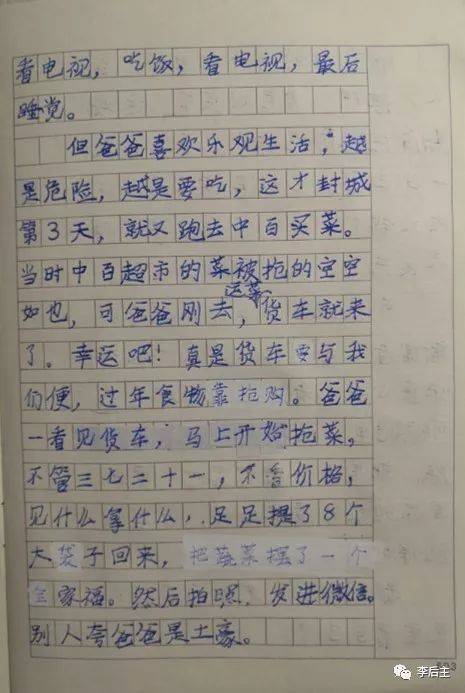 看电视，吃饭，看电视，最后
睡觉。
但爸爸喜欢乐观生活，越
是危险，越是要吃，这才封城
第3天，就又跑去中百买菜。
当时中百超市的菜被抢的空空
运菜
如也，可爸爸刚去，货车就来
了。幸运吧！真是货车要与我
们便，过年食物靠抢购。爸爸
一看见货车，马上开始抢菜，
不管三七二十一，不看价格，
见什么拿什么，足足提了8个
大袋子回来，把蔬菜摆了一个
全家福。然后拍照，发进微信。
别人夸爸爸是土豪。
李后主